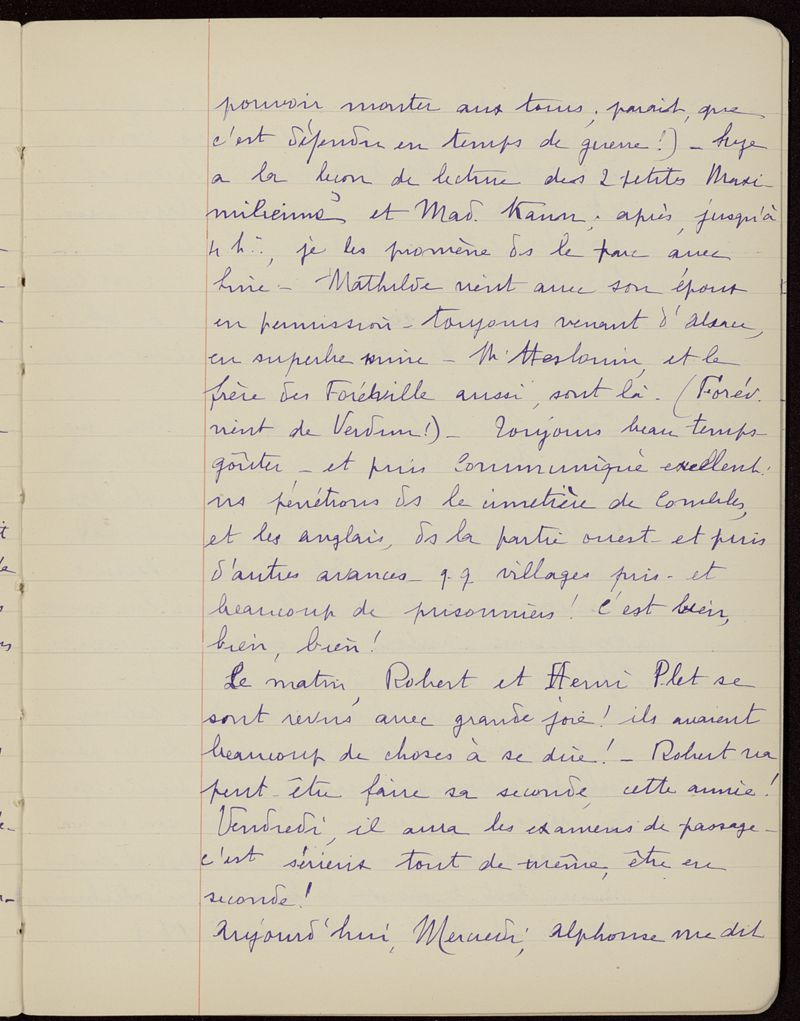 pouvoir monter aux tours, parait, que
c'est défendu en temps de guerre!) –
a la leçon de lecture des 2 petites Maxi-
miliennes et Mad. ; après, jusqu'à
4 h½, je les promène ds le parc avec
– Mathilde vient avec son époux
en permission – toujours venant d'Alsace,
en superbe mine – et le
frère des Forédville aussi, sont là. (Forév.
vient de Verdun!) – Toujours beau temps
goûter – et puis communiqué excellent:
ns pénétrons ds le cimetière de Combles,
et les anglais, ds la partie ouest – et puis
d'autres avances – q.q. villages pris – et
beaucoup de prisonniers! C'est bien,
bien, bien!
Le matin, Robert et Henri Plet se
sont revus avec grande joie! ils avaient
beaucoup de choses à se dire! – Robert va
peut-être faire sa seconde, cette année!
Vendredi, il aura les examens de passage –
c'est sérieux tout de même, être en
seconde!
Aujourd'hui, Mercredi, Alphonse me dit